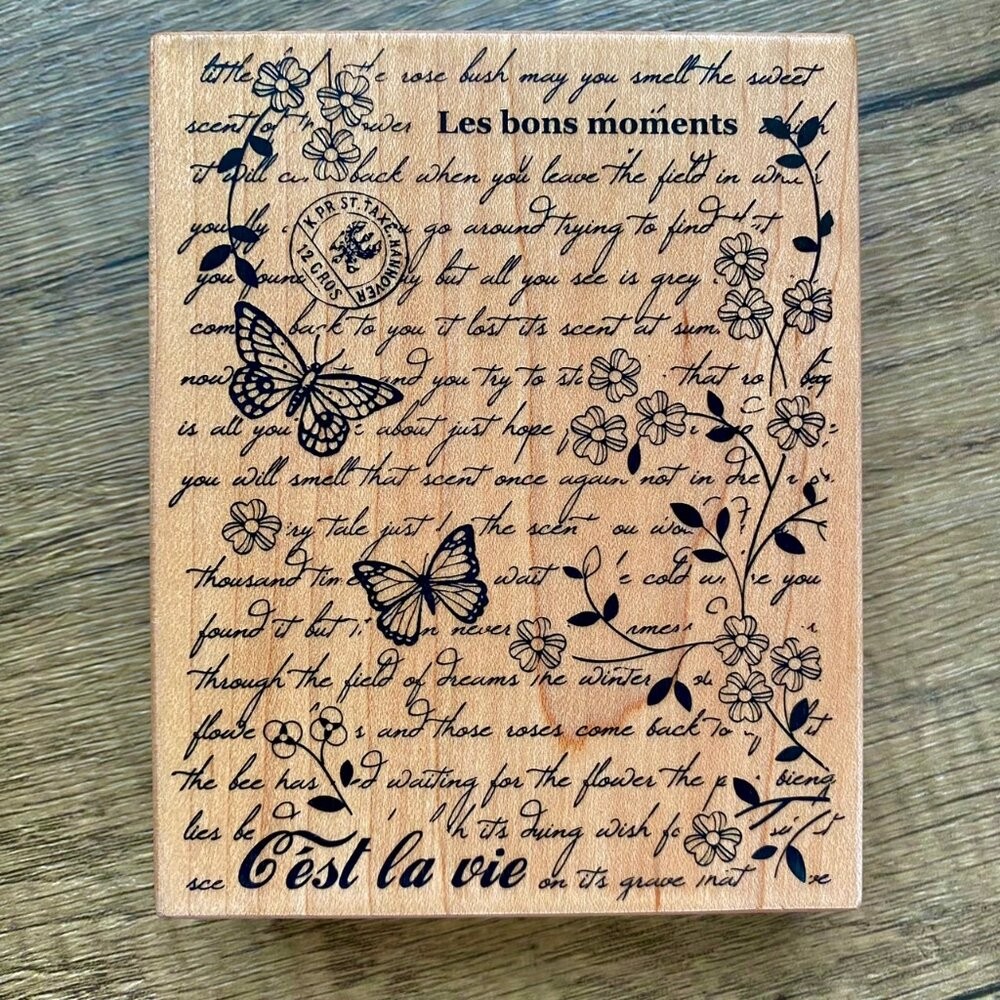 little the rose bush may you smell the sweet
scent of Les bons moments which
it will back when you leave the field in
you go around trying to find it
you but all you see is grey
back to you it lost its scent at
now and you try to that
is all you about just hope
you will smell that scent once again not in
tale just the scent you
thousand wait cold you
found it but never
through the field of dreams the winter
s and those roses come back to it
the bee has waiting for the flower the
lies its dying wish
C'est la vie on its grave that
K.PR ST.TAXE HANNOVER
12 GROS